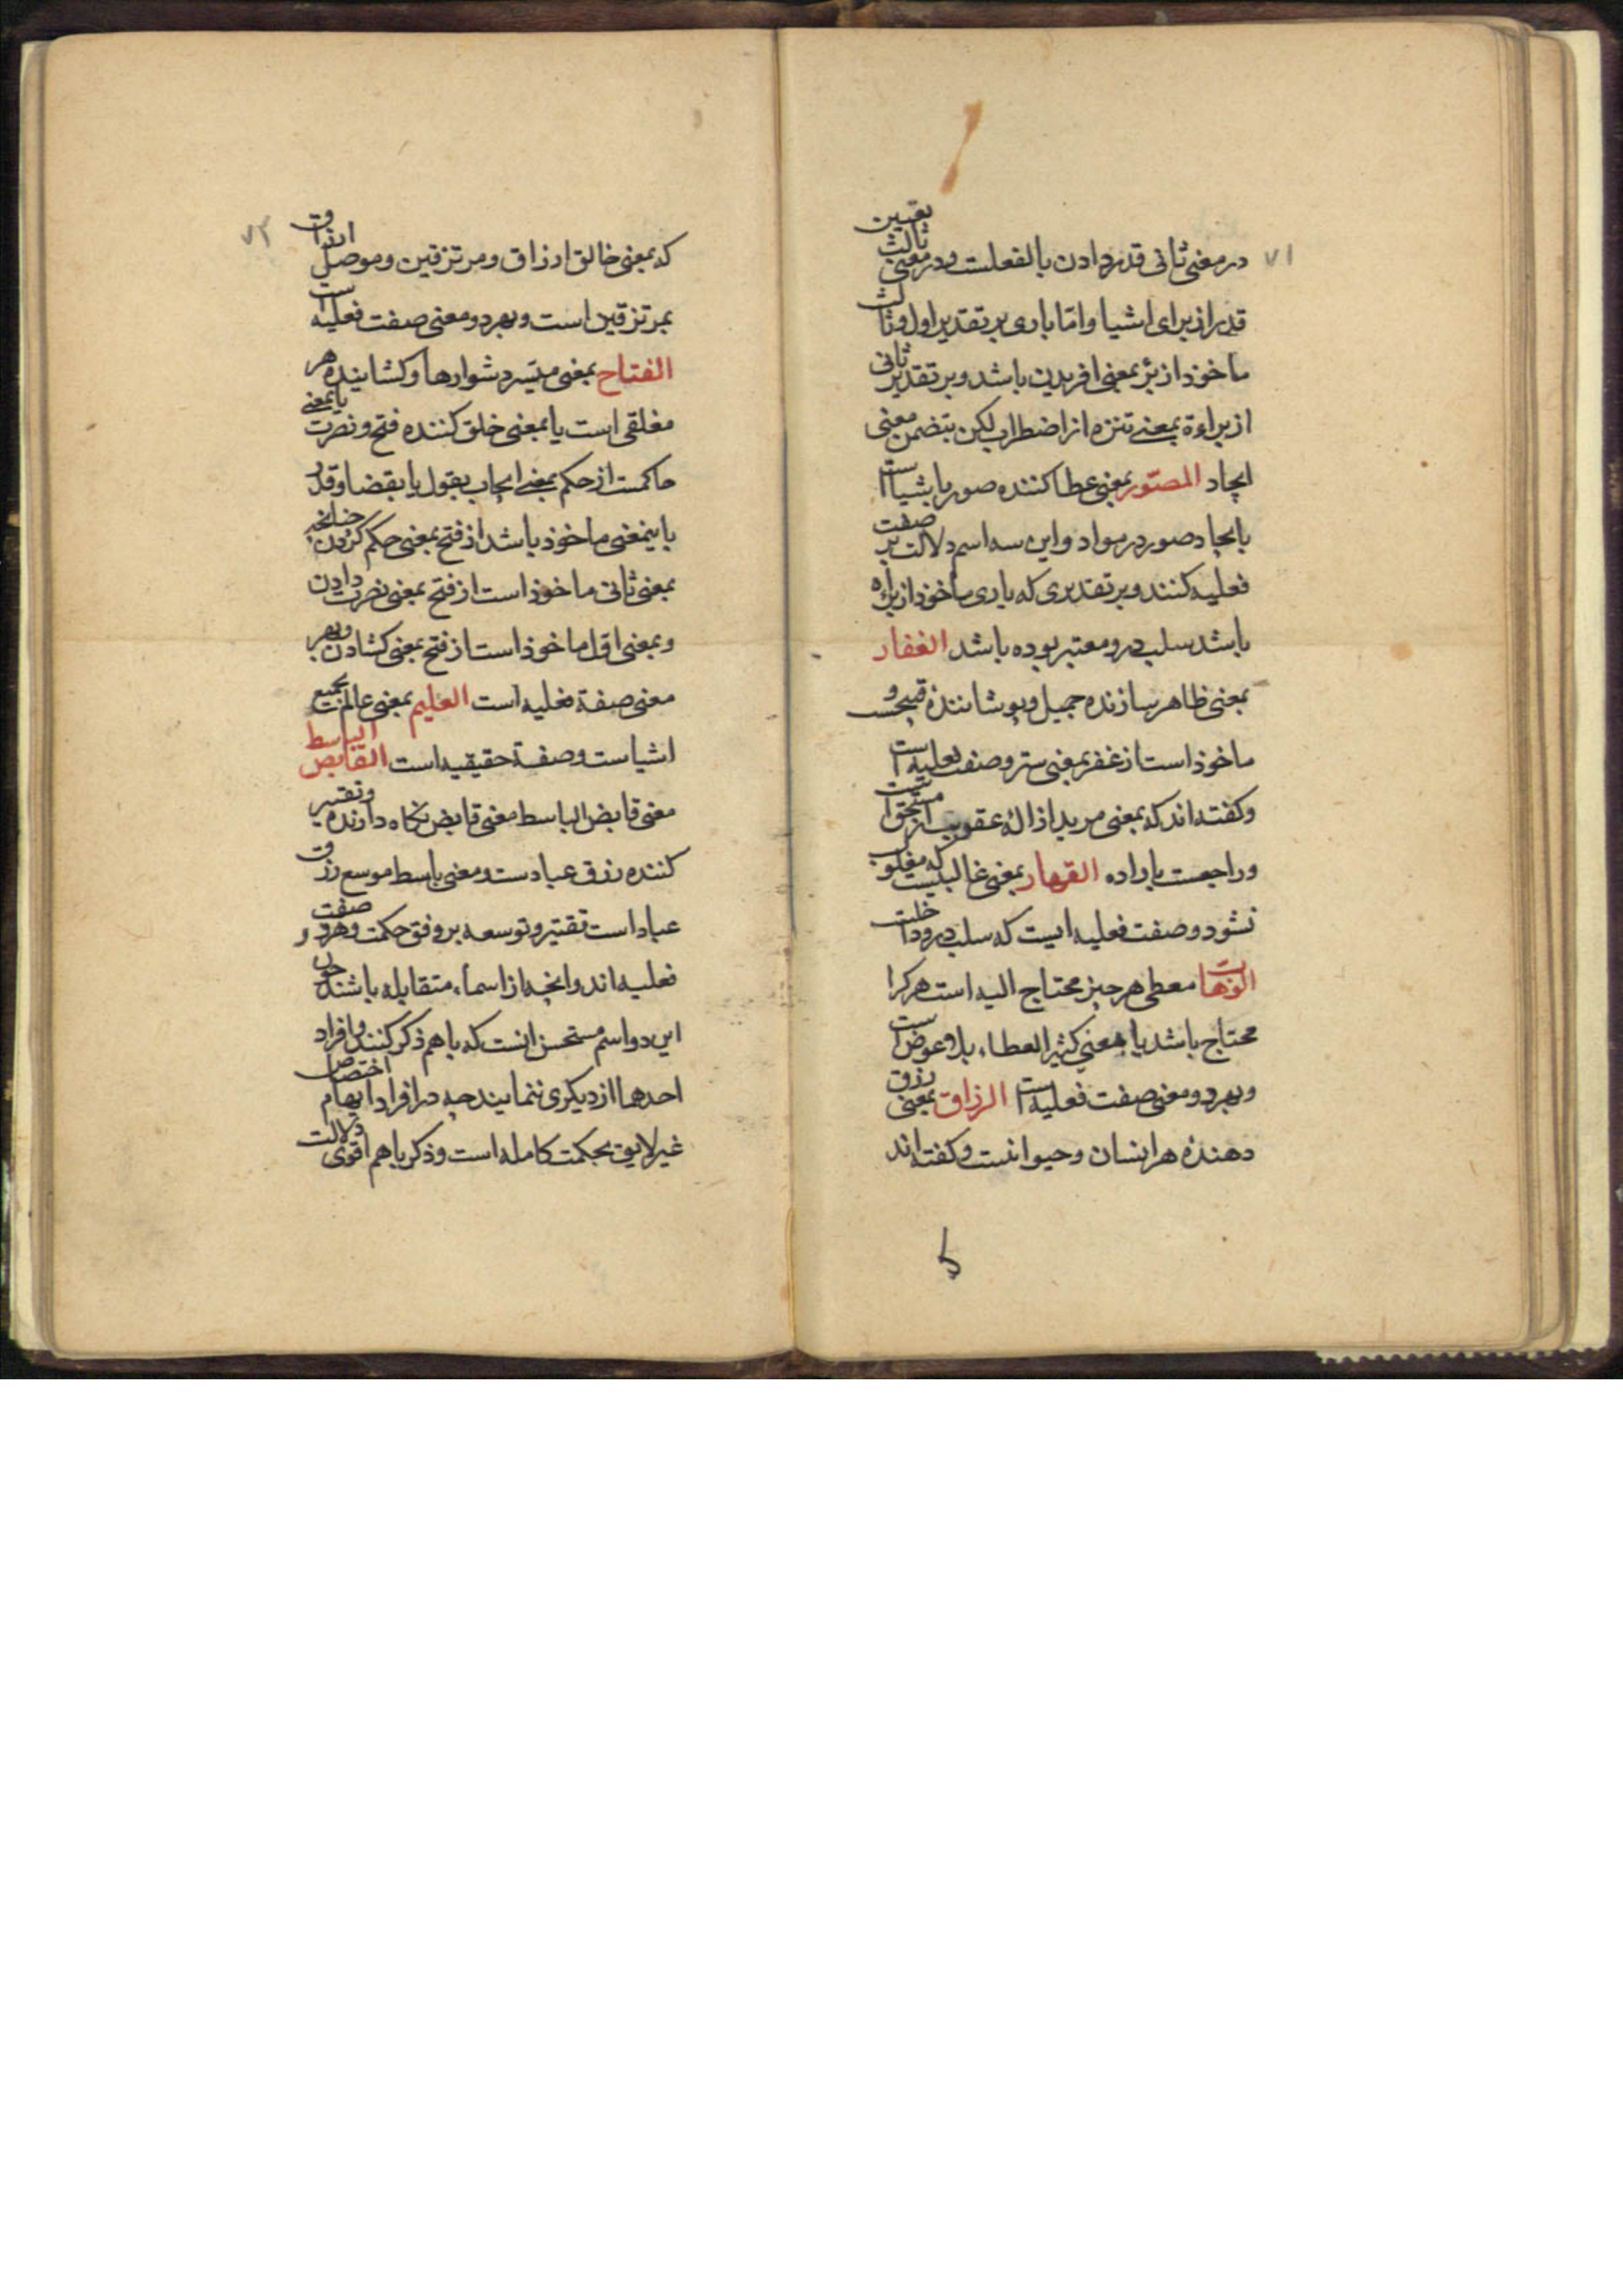 ۷۱
در معنی ثانی قدر دادن بالفعلست و در معنی ثالث تعیین
قدر از برای اشیا و امّا باری بر تقدیر اول و ثالث
ماخوذ از برٔ بمعنی افریدن باشد و بر تقدیر ثانی
از براءة بمعنی تنزه از اضطراب لکن بتضمن معنی
ایجاد المصوّر بمعنی عطا کننده صور باشیا است
بایجاد صور در مواد و این سه اسم دلالت بر صفت
فعلیه کنند و بر تقدیری که باری ماخوذ از براه
باشد سلب درو معتبر بوده باشد الغفار
بمعنی ظاهر سازنده جمیل و پوشاننده قبیح و
ماخوذ است از غفر بمعنی ستر و صفت فعلیه است
و کفته اند که بمعنی مرید ازاله عقوبت از مستحق است
و راجعست باراده القهار بمعنی غالبیست که مغلوب
نشود و صفت فعلیه ایست که سلب درو داخلست
الوهاب معطی هر چیز محتاج الیه است هر کرا
محتاج باشد یا بمعنی کثیر العطاء بلا عوض است
و بهر دو معنی صفت فعلیه است الرزاق بمعنی رزق
دهنده هر انسان و حیوانست و کفته اند
۷۲
که بمعنی خالق ارزاق و مرتزقین و موصل ارزاق
بمرتزقین است و بهر دو معنی صفت فعلیه است
الفتاح بمعنی میسّر دشوارها و کشاینده هر
مغلقی است یا بمعنی خلق کننده فتح و نصرت یا بمعنی
حاکمست از حکم بمعنی ایجاب بقول یا بقضا و قدر
باینمعنی ماخوذ باشد از فتح بمعنی حکم کردن چنانچه
بمعنی ثانی ماخوذ است از فتح بمعنی نصرت دادن
و بمعنی اول ماخوذ است از فتح بمعنی کشادن و بهر
معنی صفة فعلیه است العلیم بمعنی عالم بجمیع
اشیاست و صفة حقیقیه است القابض الباسط
معنی قابض الباسط معنی قابض نکاه دارنده و تقتیر
کننده رزق عبادست و معنی باسط موسع رزق
عباد است تقتیر و توسعه بر وفق حکمت و هر دو صفت
فعلیه اند و انچه از اسماء متقابله باشند چون
این دو اسم مستحسن انست که باهم ذکر کنند و افراد
احدهما از دیکری ننمایند چه در افراد ایهام اختصاص
غیر لایق بحکمت کامله است و ذکر باهم اقوی دلالت